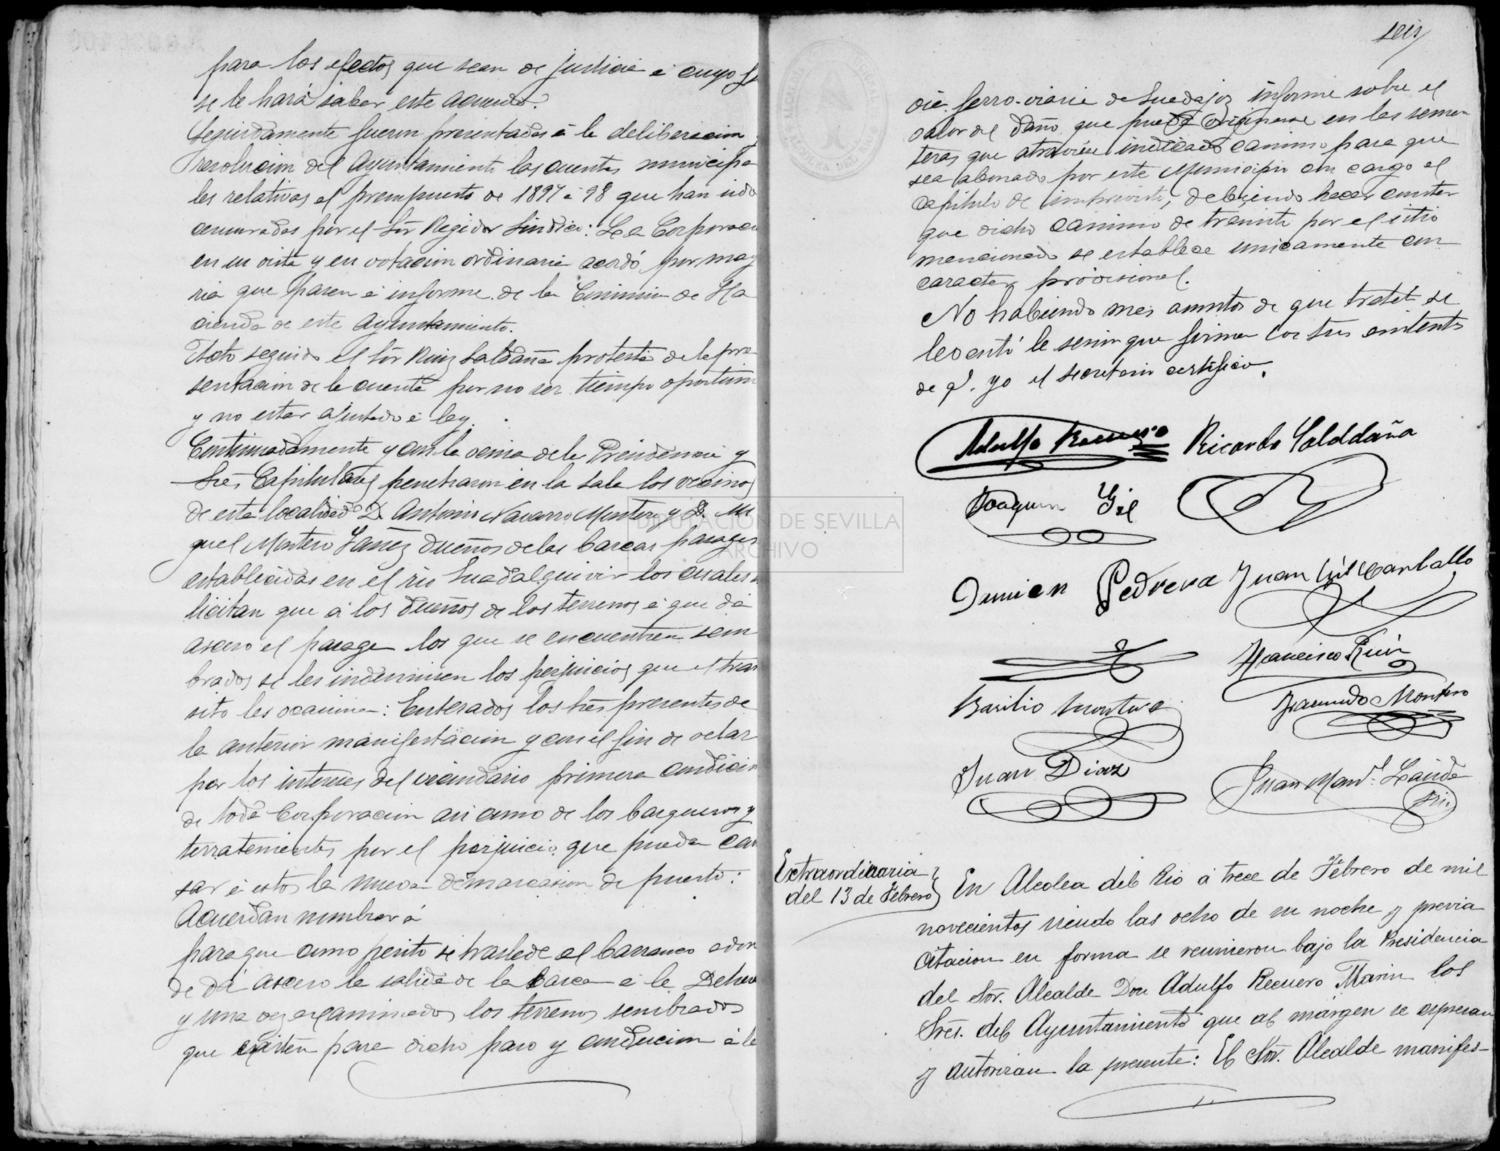 para los efectos que sean de justicia á cuyo
se le hará saber este acuerdo.
Seguidamente fueron presentadas á la deliberacion y
resolucion del Ayuntamiento las cuentas municipa
les relativas al presupuesto de 1897 á 98 que han sido
censuradas por el Sór Regidor Sindico: La Corporacion
en su vista y en votacion ordinaria acordó por mayo
ria que pasen á informe de la Comision de Ha
cienda de este Ayuntamiento.
Acto seguido el Sór Ruiz Saldaña protesta de la pre
sentacion de la cuenta por no ser tiempo oportuno
y no estar ajustado á ley.
Continuadamente y con la venia de la Presidencia y
Sres Capitulares penetraron en la sala los vecinos
de esta localidad D. Antonio Navarro Montero y D. Mi
guel Montero dueños de las barcas pasages
establecidas en el rio Guadalquivir los cuales so
licitan que á los dueños de los terrenos á que dá
acceso el pasage los que se encuentren sem
brados se les indemnicen los perjuicios que el tran
sito les ocasione: Enterados los Srés presentes de
la anterior manifestacion y con el fin de velar
por los intereses del vecindario primera condicion
de toda Corporacion asi como de los barqueros y
terratenientes por el perjuicio que pueda cau
sar á estos la nueva demarcasion de puerto:
Acuerdan nombrar á
para que como perito se traslade al barranco adon
de dá acceso la salida de la barca á la Dehesa
y una vez examinados los terrenos sembrados
que existen para dicho paso y conduccion á la
seis
via ferro-viaria de Guadajoz informe sobre el
valor del daño que pueda originarse en las semen
teras que atraviese indicado camino para que
sea abonado por este Municipio con cargo al
capitulo de imprevisto, debiendo hacer constar
que dicho camino de transito por el sitio
mencionado se establece unicamente con
caracter provisional.
No habiendo mas asuntos de que tratar se
levantó la sesion que firman los Sres asistentes
de q.e yo el Secretario certifico.
Adolfo Recuero Ricardo Saldaña
Joaquin Gil
Damian Pedrera Juan Luis Carballo
Francisco Ruiz
Basilio Montero Facundo Montero
Juan Diaz Juan Man.l
Srio
Extraordinaria
del 13 de Febrero
En Alcolea del Rio á trece de Febrero de mil
novecientos siendo las ocho de su noche y previa
citacion en forma se reunieron bajo la Presidencia
del Sor. Alcalde Don Adolfo Recuero Marin los
Sres. del Ayuntamiento que al margen se espresan
y autorizan la presente: El Sor. Alcalde manifes-
DIPUTACIÓN DE SEVILLA
ARCHIVO